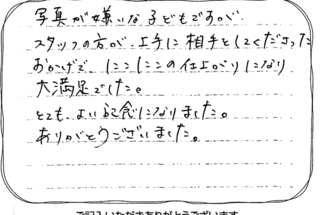 写真が嫌いな子どもですが、
スタッフの方が、上手に相手をしてくださった
おかげで、にこにこの仕上がりになり
大満足でした。
とても、よい記念になりました。
ありがとうございました。
ご記入いただきありがとうございます